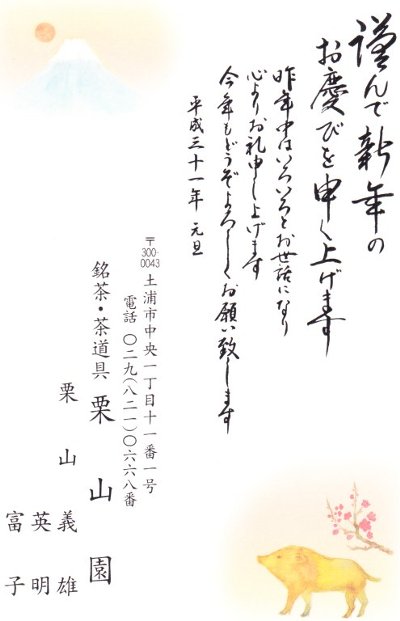 謹んで新年の
お慶びを申し上げます
昨年中はいろいろとお世話になり
心よりお礼申し上げます
今年もどうぞよろしくお願い致します
平成三十一年 元旦
〒300-0043 土浦市中央一丁目十一番一号
電話 〇二九(八二一)〇六六八番
銘茶・茶道具 栗山園
栗山 義雄
英明
富子